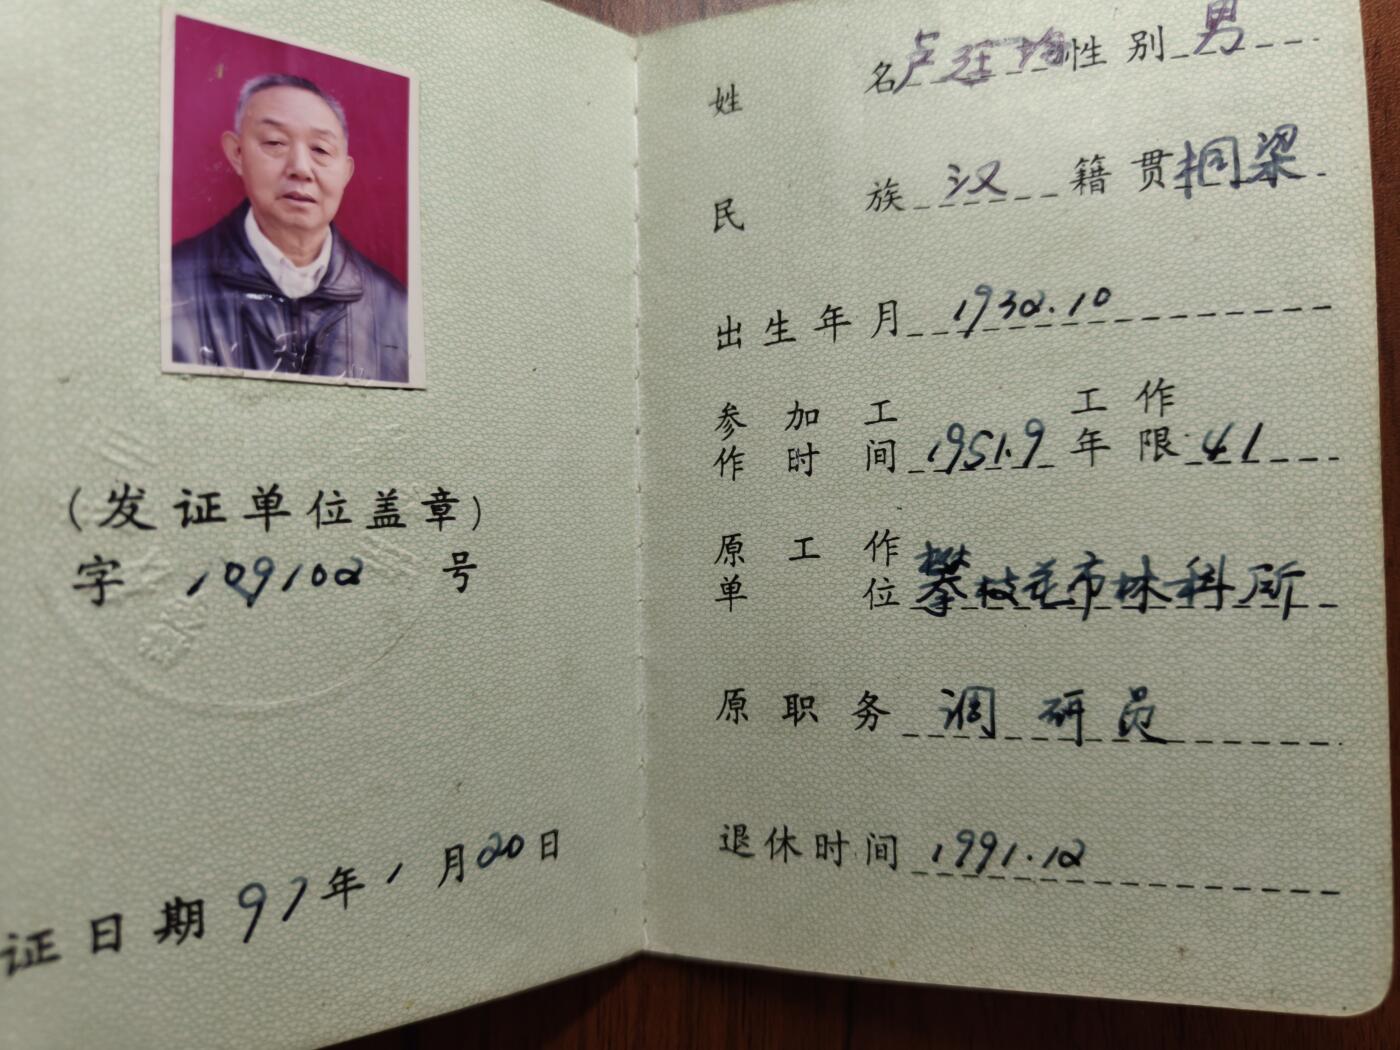 (发证单位盖章)
字 109102 号
证日期 97年1月20日
姓 名 卢 性别 男
民 族 汉 籍贯 桐梁
出生年月 1932.10
参加工作时间 1951.9 工作年限 41
原工作单位 攀枝花市林科所
原职务 调研员
退休时间 1991.12